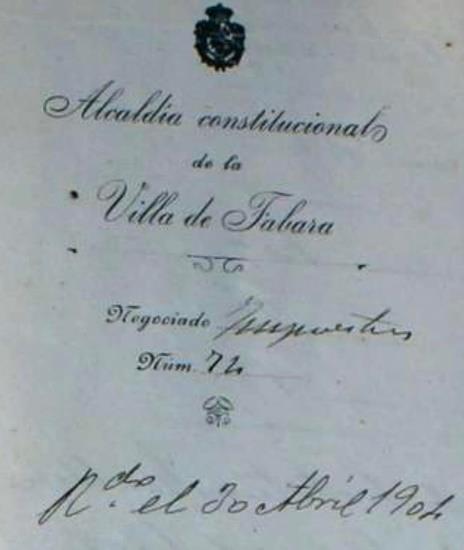 Alcaldía constitucional
de la
Villa de Tabara
Negociado Impuestos
Núm. 72
R.do el 30 Abril 1904